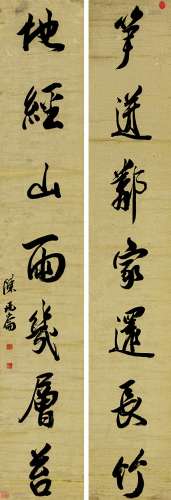 笋迸鄰家還長竹
地經山雨幾層苔
陳兆崙